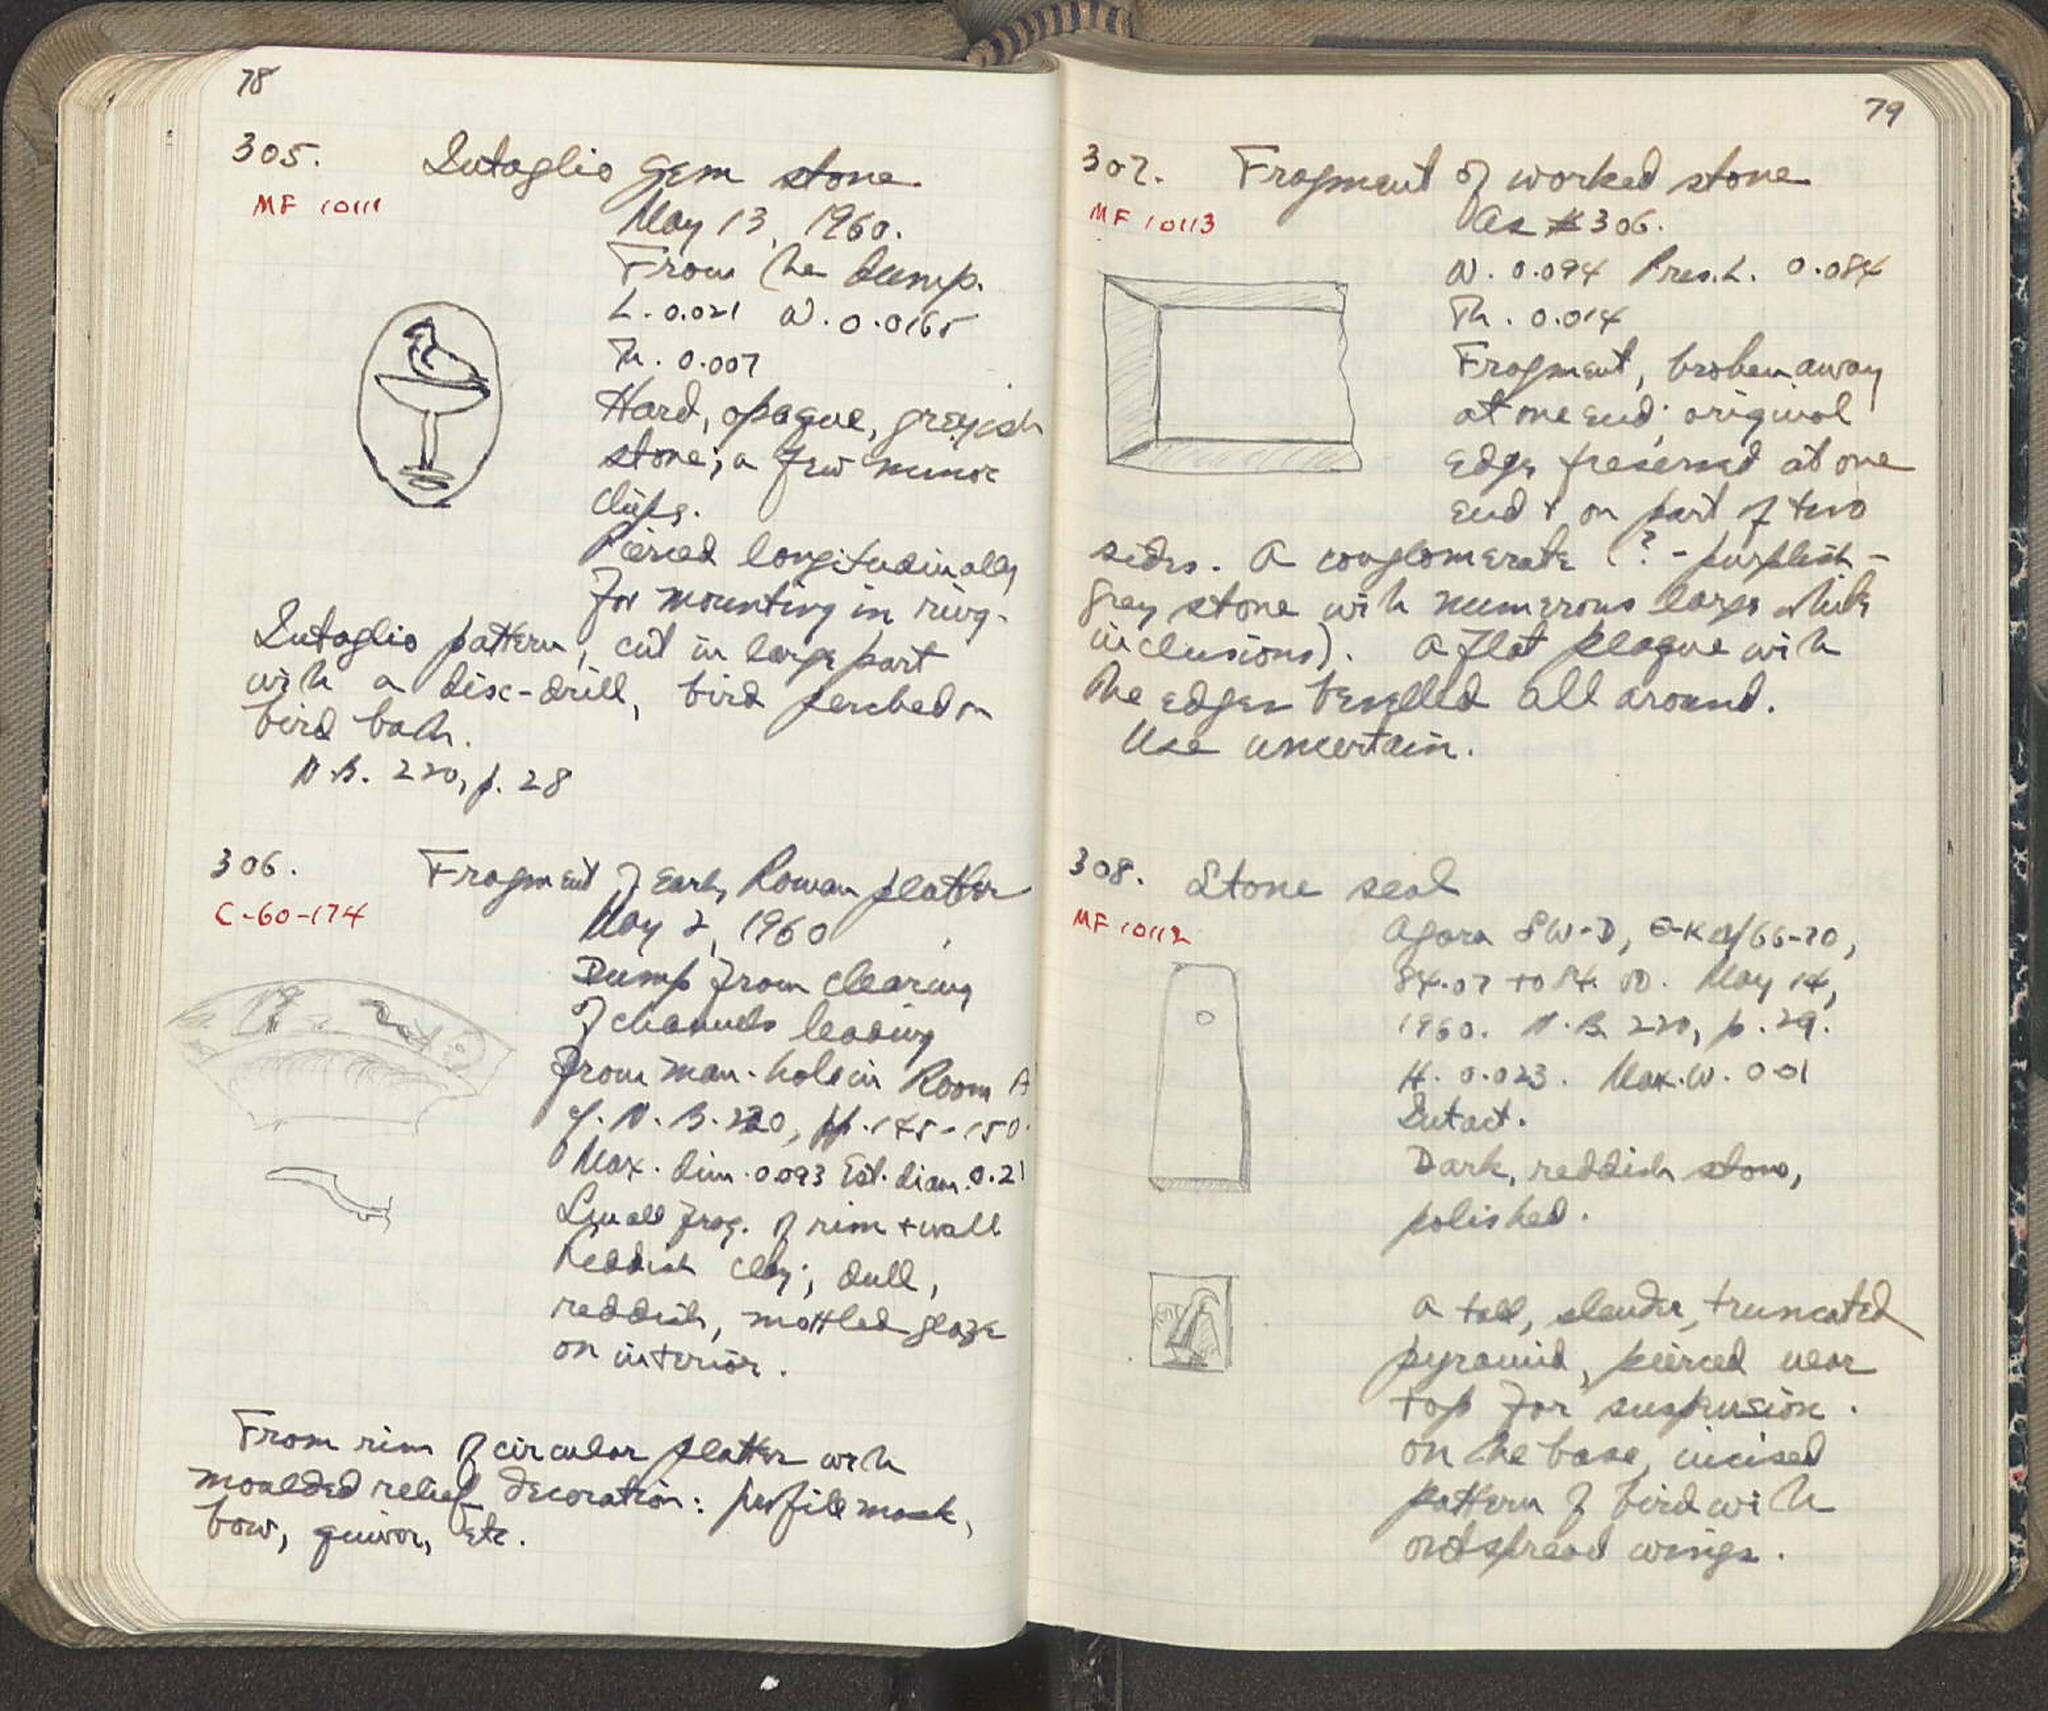 78
305. Intaglio gem stone
MF 10111
May 13, 1960.
From the dump.
L. 0.021 W. 0.0165
Th. 0.007
Hard, opaque, greyish
stone; a few minor
chips.
Pierced longitudinally
for mounting in ring.
Intaglio pattern, cut in large part
with a disc-drill, bird perched on
bird bath.
N.B. 220, p. 28
306. Fragment of Early Roman platter
C-60-174
May 2, 1960
Dump from clearing
of channels leading
from man-hole in Room A
cf. N.B. 220, pp. 145-150.
Max. dim. 0.093 Est. diam. 0.21
Small frag. of rim + wall
Reddish clay; dull,
reddish, mottled glaze
on interior.
From rim of circular platter with
moulded relief decoration: profile mask,
bow, quiver, etc.
79
307. Fragment of worked stone
MF 10113
As #306.
W. 0.094 Pres. L. 0.084
Th. 0.014
Fragment, broken away
at one end; original
edge preserved at one
end + on part of two
sides. A conglomerate (? - purplish-
grey stone with numerous large white
inclusions). A flat plaque with
the edges bevelled all around.
Use uncertain.
308. Stone seal
MF 10112
Agora SW-D, 66-70,
84.07 to 84. May 14,
1960. N.B. 220, p. 29.
H. 0.023. Max. W. 0.01
Intact.
Dark, reddish stone,
polished.
A tall, slender, truncated
pyramid, pierced near
top for suspension.
On the base, incised
pattern of bird with
outspread wings.